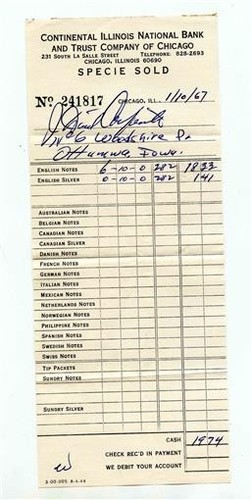 CONTINENTAL ILLINOIS NATIONAL BANK
AND TRUST COMPANY OF CHICAGO
231 SOUTH LA SALLE STREET TELEPHONE: 828-2693
CHICAGO, ILLINOIS 60690
SPECIE SOLD
No 241817 CHICAGO, ILL. 1/10/67
Ottumwa, Iowa.
ENGLISH NOTES 6-10-0 282 1833
ENGLISH SILVER 0-10-0 282 141
AUSTRALIAN NOTES
BELGIAN NOTES
CANADIAN NOTES
CANADIAN SILVER
DANISH NOTES
FRENCH NOTES
GERMAN NOTES
ITALIAN NOTES
MEXICAN NOTES
NETHERLANDS NOTES
NORWEGIAN NOTES
PHILIPPINE NOTES
SPANISH NOTES
SWEDISH NOTES
SWISS NOTES
TIP PACKETS
SUNDRY NOTES
SUNDRY SILVER
CASH 1974
CHECK REC'D IN PAYMENT
WE DEBIT YOUR ACCOUNT